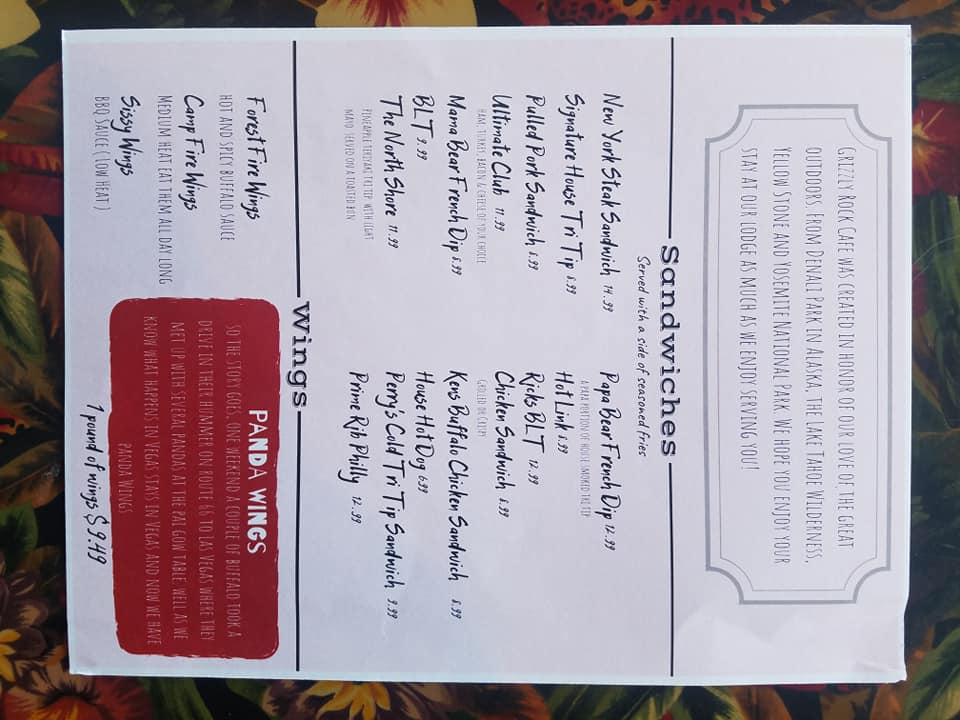 GRIZZLY ROCK CAFE WAS CREATED IN HONOR OF OUR LOVE OF THE GREAT
OUTDOORS. FROM DENALI PARK IN ALASKA, THE LAKE TAHOE WILDERNESS,
YELLOW STONE AND YOSEMITE NATIONAL PARK. WE HOPE YOU ENJOY YOUR
STAY AT OUR LODGE AS MUCH AS WE ENJOY SERVING YOU!
Sandwiches
Served with a side of seasoned fries
New York Steak Sandwich 14.99
Signature House Tri Tip 8.99
Pulled Pork Sandwich 8.99
Ultimate Club 11.99
HAM, TURKEY, BACON & CHEESE OF YOUR CHOICE
Mama Bear French Dip 8.99
BLT 9.99
The North Shore 11.99
PINEAPPLE TERIYAKI TRI TIP WITH LIGHT
MAYO. SERVED ON A TOASTED BUN
Papa Bear French Dip 12.99
A PAPA PORTION OF HOUSE SMOKED TRI TIP
Hot Link 8.99
Ricks BLT 12.99
Chicken Sandwich 8.99
GRILLED OR CRISPY
Kens Buffalo Chicken Sandwich 8.99
House Hot Dog 6.99
Perry's Cold Tri Tip Sandwich 9.99
Prime Rib Philly 12.99
Wings
Forest Fire Wings
HOT AND SPICY BUFFALO SAUCE
Camp Fire Wings
MEDIUM HEAT EAT THEM ALL DAY LONG
Sissy Wings
BBQ SAUCE (LOW HEAT)
PANDA WINGS
SO THE STORY GOES, ONE WEEKEND A COUPLE OF BUFFALO TOOK A
DRIVE IN THEIR HUMMER ON ROUTE 66 TO LAS VEGAS WHERE THEY
MET UP WITH SEVERAL PANDAS AT THE PAI GOW TABLE. WELL AS WE
KNOW WHAT HAPPENS IN VEGAS STAYS IN VEGAS AND NOW WE HAVE
PANDA WINGS
1 pound of wings $9.49